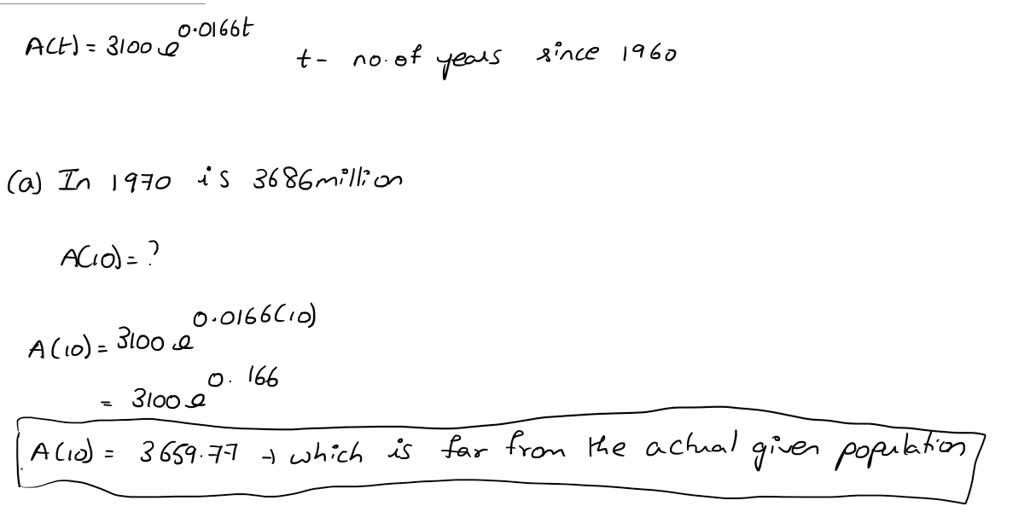 A(t) = 3100 e^0.0166t
t - no. of years since 1960
(a) In 1970 is 3686 million
A(10) = ?
A(10) = 3100 e^0.0166(10)
= 3100 e^0.166
A(10) = 3659.77 → which is far from the actual given population